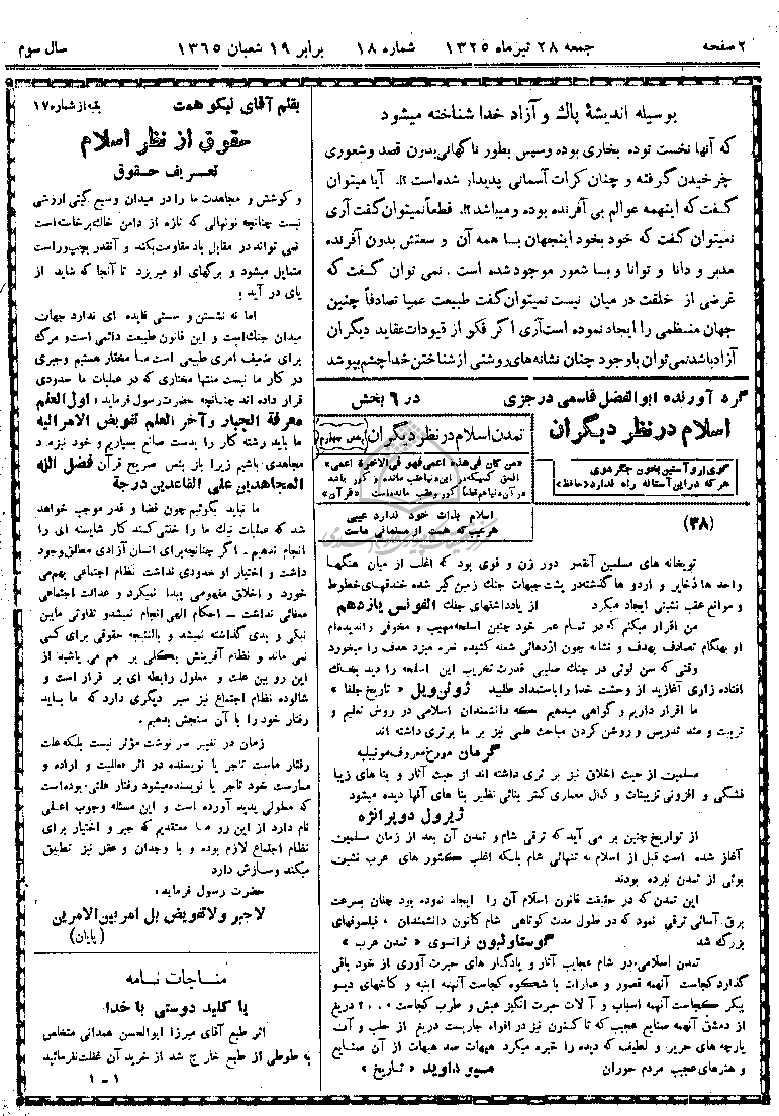 ۲ صفحه
جمعه ۲۸ تیر ماه ۱۳۲۵
شماره ۱۸
برابر ۱۹ شعبان ۱۳۶۵
سال سوم
بوسیله اندیشهٔ پاك و آزاد خدا شناخته میشود
که آنها نخست توده بخاری بوده وسپس بطور ناگهانی بدون قصد وشعوری
چرخیدن گرفته و چنان کرات آسمانی پدیدار شده است ؟!. آیا میتوان
گفت که اینهمه عوالم بی آفرنده بوده و میباشد ؟!. قطعاً نمیتوان گفت آری
نمیتوان گفت که خود بخود اینجهان بسا همه آن و سعتش بدون آفرنده
مدبر و دانا و توانا و بسا شعور موجود شده است . نمی توان گفت که
غرضی از خلقت در میان نیست نمیتوان گفت طبیعت عمیا تصادفاً چنین
جهان منظمی را ایجاد نموده است آری اگر فکو از قیودات عقاید دیگران
آزاد باشد نمی‌توان بارجود چنان نشانه‌های روشنی از شناختن خدا چشم پوشد
گرد آورنده ابوالفضل قاسمی در جزی
در ۶ بخش
اسلام در نظر دیگران
تمدن اسلام در نظر دیگران
بخش چهارم
هر که در این آستانه راه ندارد (حافظ»
«من کان فی هذه اعمی فهو فی الاخرة اعمی»
در آن دنیا هم قطعاً کور وعقب مانده است «قرآن»
اسلام بذات خود ندارد عیبی
هر عیب که هست از مسلمانی ماست
(۳۸)
توپخانه های مسلمین آنقدر دور زن و قوی بود که اغلب از میان هنگها
واحد ها ذخایر و اردو ها گذشته در پشت جبهات جنك زمین گیر شده خندقهای خطوط
و موانع عقب نشینی ایجاد میکرد از یادداشتهای جنك الفونس یازدهم
من اقرار میکنم که در تمام عمر خود چنین اسلحه مهیب و مخوفی را ندیده‌ام
او بهنگام تصادف بهدف و نشانه چون اژدهائی شعله کشیده نعره میزد هدف را میخورد
وقتی که سن لوئی در جنك صلیبی قدرت تخریب این اسلحه را دید بخاك
افتاده زاری آغازید از وحشت خدا را باستمداد طلبید ژوئن ویل « تاریخ جلفا »
ما اقرار داریم و گواهی میدهیم حکه دانشمندان اسلامی در روش تعلیم و
تربیت و متد تدریس و روشن کردن مباحث علمی نیز بر ما برتری داشته اند
گرمان مورخ معروف مونپلیه
مسلمین از حیث اخلاق نیز بر تری داشته اند از حیث آثار و بنا های زیبا
قشنگی و افزونی تزیینات و کمال معماری کمتر بنائی نظیر بنا های آنها دیده میشود
ژیرول دوپرانژه
از تواریخ چنین بر می آید که ترقی شام و تمدن آن بعد از زمان مسلمین
آغاز شده است قبل از اسلام نه تنهائی شام بلکه اغلب کشور های عرب نشین
بوئی از تمدن نبرده بودند
این تمدن که در حقیقت قانون اسلام آن را ایجاد نموده بود چنان بسرعت
برق آسائی ترقی نمود که در طول مدت کوتاهی شام کانون دانشمندان ، فیلسوفهای
بزرگ شد گوستاولوبون فرانسوی « تمدن عرب »
تمدن اسلامی در شام عجایب آثار و یادگار های حیرت آوری از خود باقی
گذارد کجاست آنهمه قصور و عمارات با شکوه کجاست آنهمه ابنیه و کاخهای دیو
پیکر کجاست آنهمه اسباب و آلات حیرت انگیز عیش و طرب کجاست ۰۰۰ دریغ
از دمشق آنهمه صنایع عجیب که تا کنون نیز در افواه جاریست دریغ از حلب و آن
پارچه های حریر و لطیف که دیده را خیره میکرد هیهات صد هیهات از آن صنایع
و هنرهای عجیب مردم حوران مسیو داوید « تاریخ »
بقلم آقای نیکو همت
بقیه از شماره ۱۷
حقوق از نظر اسلام
تعریف حقوق
و کوشش و مجاهدت ما را در میدان وسیع گیتی ارزشی
نیست چنانچه نونهالی که تازه از دامن خاك برخاسته است
نمی تواند در مقابل باد مقاومت بکند و آنقدر بچپ و راست
متمایل میشود و برگهای او میریزد تا آنجا که شاید از
پای در آید !
اما نه نشستن و سستی فایده ای ندارد جهان،
میدان جنك است و این قانون طبیعت دائمی است و مرك
برای ضعیف امری طبیعی است ما مختار هستیم و جبری
در کار ما نیست منتها مختاری که در عملیات ما حدودی
قرار داده اند چنانچه حضرت رسول فرماید : اول العلم
معرفة الجبار و آخر العلم تفویض الامر الیه
ما باید رشته کار را بدست صانع بسپاریم و خود نیز مرد
مجاهدی باشیم زیرا باز بنص صریح قرآن فضل الله
المجاهدین علی القاعدین درجة
ما نباید بگوئیم چون قضا و قدر موجب خواهد
شد که عملیات نیك ما را خنثی کنند کار شایسته ای را
انجام ندهیم . اگر چنانچه برای انسان آزادی مطلق وجود
داشت و اختیار او حدودی نداشت نظام اجتماعی بهم می
خورد و اخلاق مفهومی پیدا نمیکرد و عدالت اجتماعی
معنائی نداشت — احکام الهی انجام نمیشد و تفاوتی مابین
نیکی و بدی گذاشته نمیشد و بالنتیجه حقوقی برای کسی
نمی ماند و نظام آفرینش بکلی بر هم می پاشید از
این رو بین علت و معلول رابطه ای بر قرار است و
شالوده نظام اجتماع نیز سیر دیگری دارد که ما باید
رفتار خود را با آن سنجش بدهیم .
زمان در تغییر سر نوشت مؤثر نیست بلکه علت
رفتار ماست تاجر یا نویسنده در اثر فعالیت و اراده و
ممارست خود تاجر یا نویسنده میشود رفتار علتی بوده است
که معلولی پدید آورده است و این مسئله وجوب اعلمی
نام دارد از این رو ما معتقدیم که جبر و اختیار برای
نظام اجتماع لازم بوده و با وجدان و عقل نیز تطبیق
میکند و سازش دارد
حضرت رسول فرماید :
لا جبر ولا تفویض بل امر بین الامرین
(پایان)
مناجات نامه
یا کلید دوستی با خدا:
اثر طبع آقای میرزا ابوالحسن همدانی متخلص
به طوطی از طبع خارج شد از خرید آن غفلت نفرمائید
۱ - ۱